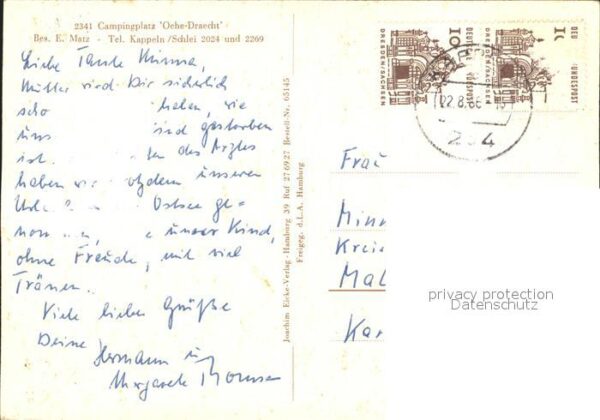 2341 Campingplatz 'Oehe-Draecht'
Bes. E. Matz - Tel. Kappeln/Schlei 2024 und 2269
Liebe Tante Minna,
Mutter wird Dir sicherlich
scho haben, wie
uns ind gestorben
ist. des Arztes
haben wi unseren
Ostsee ge=
nom unser Kind,
ohne Freude, mit viel
Tränen.
Viele liebe Grüße
Deine
Hermann u
Margarete
Joachim Eicke-Verlag-Hamburg 39 Ruf 276927 Bestell-Nr. 65145
Freigeg. d.L.A. Hamburg
DEUTSCHE BUNDESPOST
10
DRESDEN/SACHSEN
DEU BUNDESPOST
10
DRESDEN/SACHSEN
22.8.
234
Frau
Minn
Kreis
Mal
Kar
privacy protection
Datenschutz